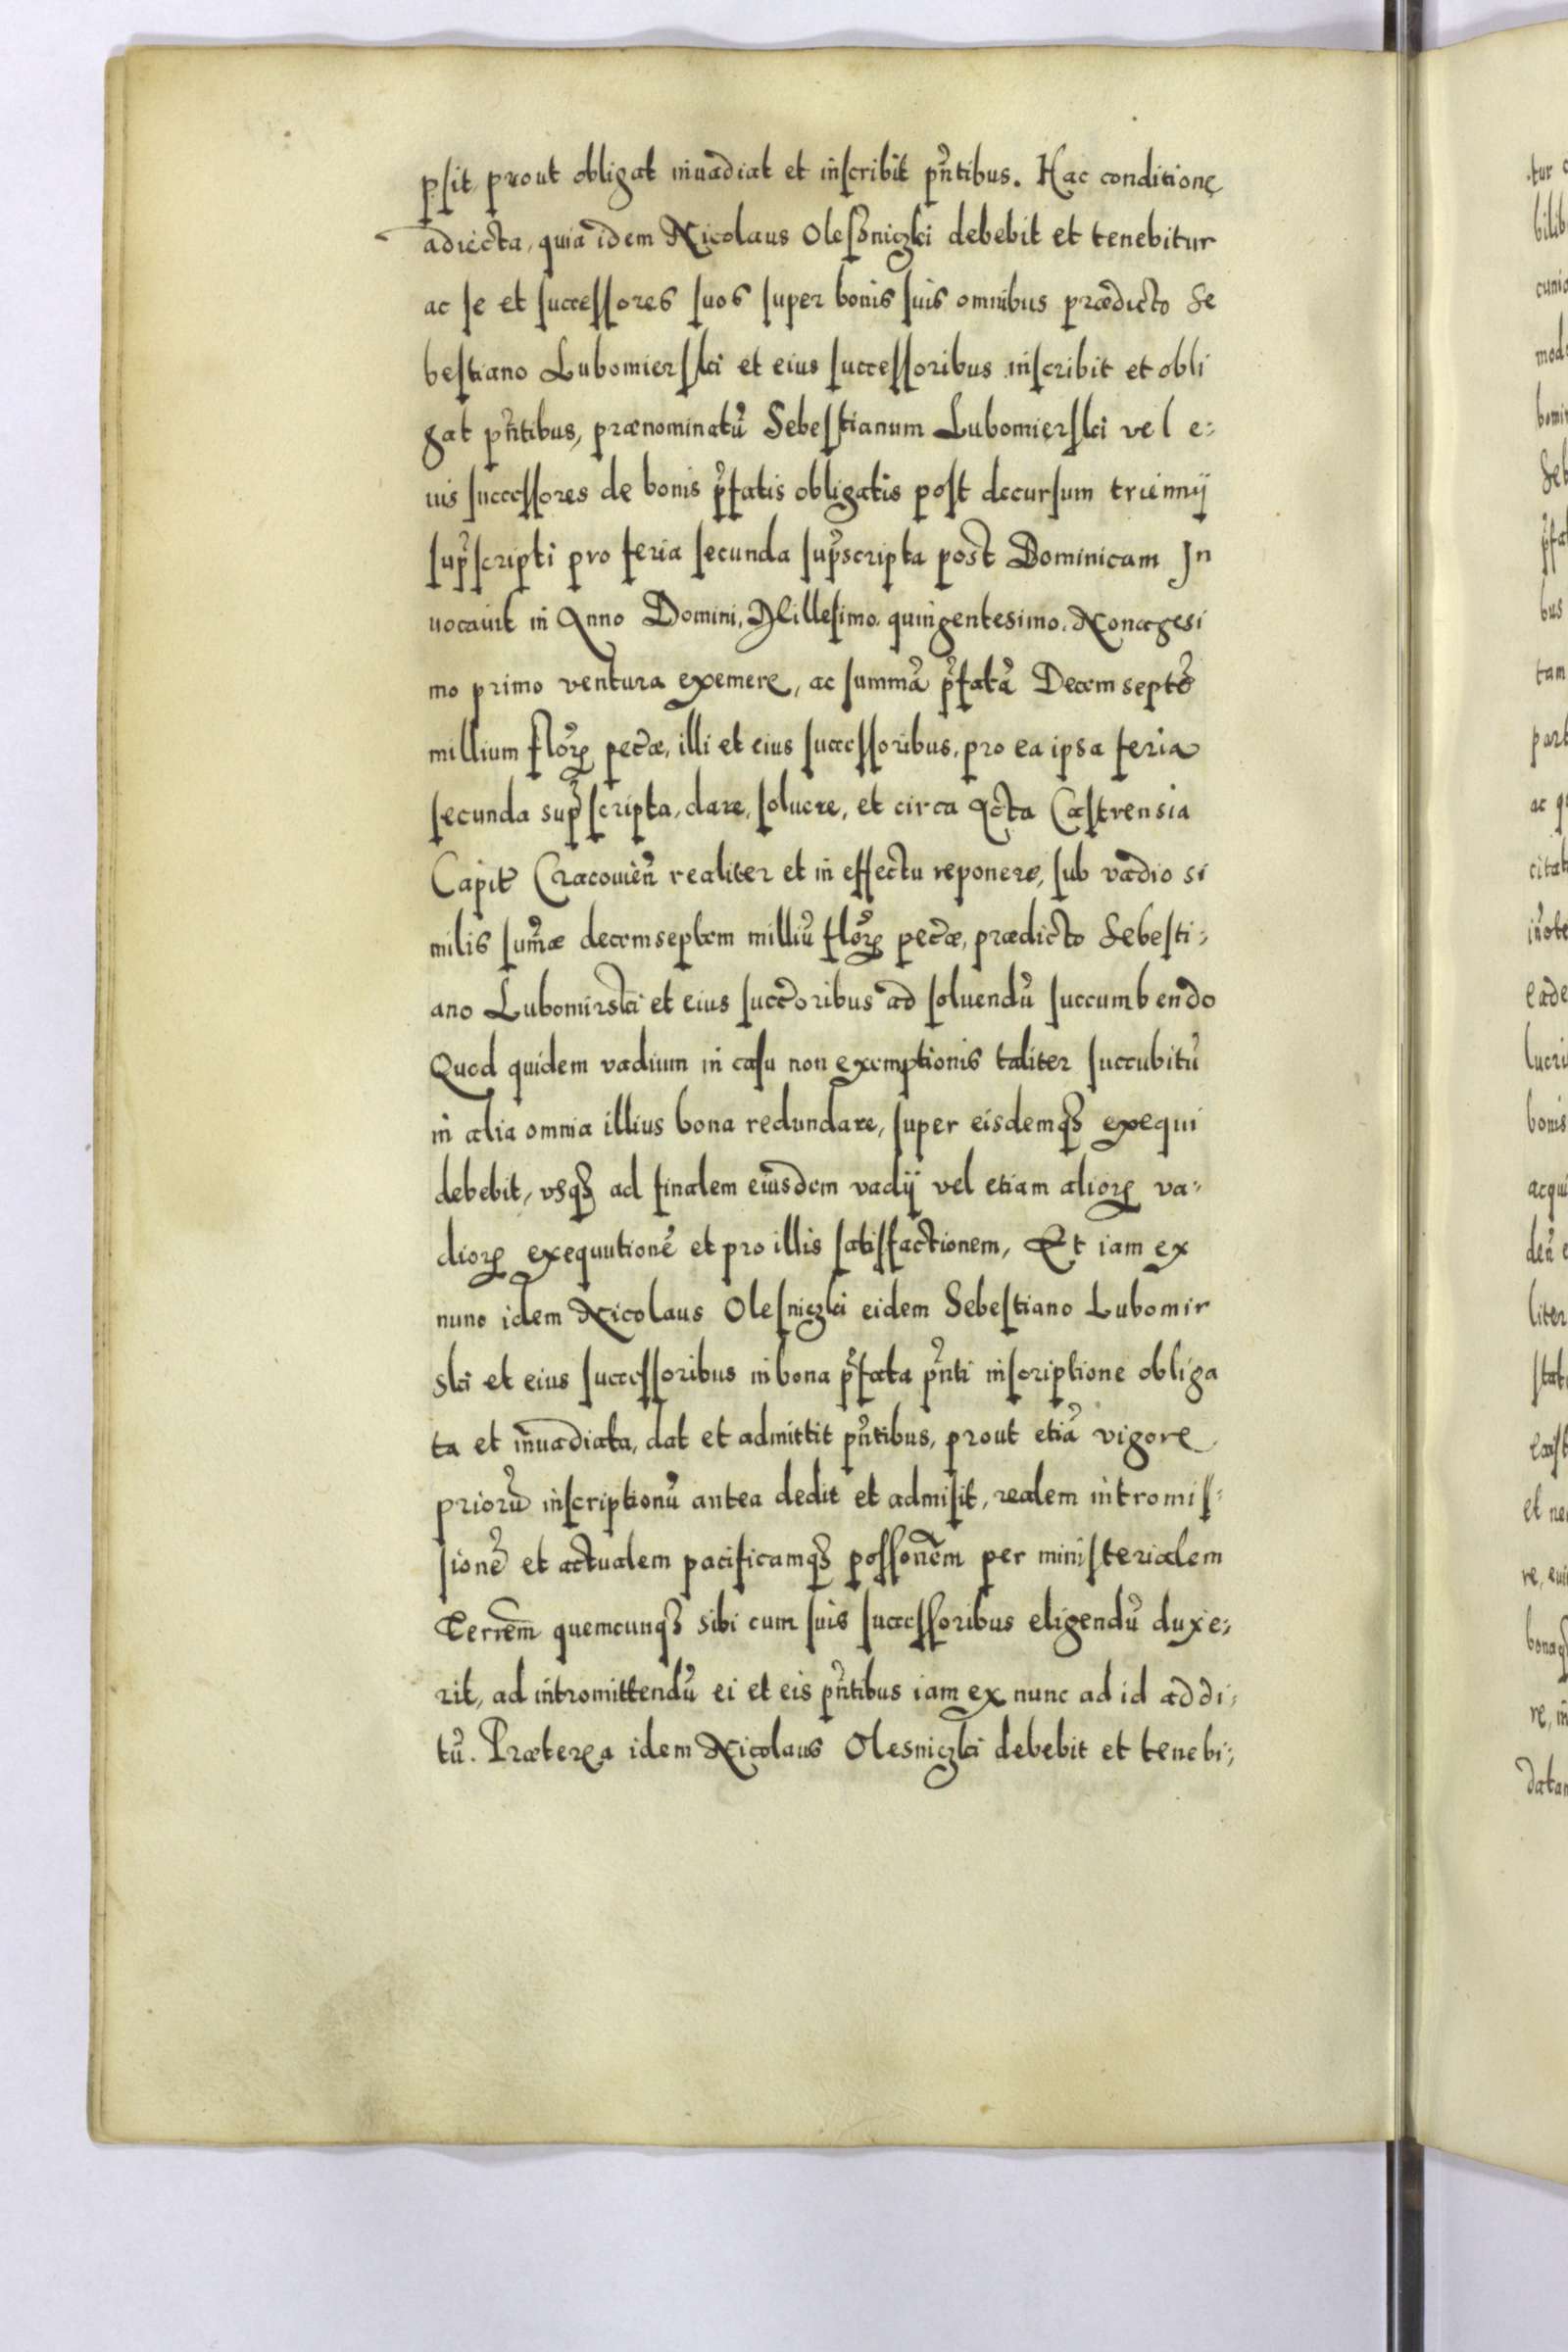 psit prout obligat inuadiat et inscribit pñtibus. Hac conditione
adiecta, quia idem Nicolaus Olesniczki debebit et tenebitur
ac se et successores suos super bonis suis omnibus prædicto Se
bestiano Lubomierski et eius successoribus inscribit et obli
gat pñtibus, prænominatũ Sebestianum Lubomierski vel e:
ius successores de bonis p̃fatis obligatis post decursum triennij
sup̃scripti pro feria secunda sup̃scripta post Dominicam In
uocauit in Anno Domini, Millesimo. quingentesimo. Nonagesi
mo primo ventura exemere, ac summã p̃fatã Decem septẽ
millium florꝝ pecũæ, illi et eius successoribus, pro ea ipsa feria
secunda sup̃scripta, dare, soluere, et circa Acta Castrensia
Capit̃ Cracouieñ realiter et in effectu reponere, sub vadio si
milis sum̃æ decemseptem milliũ florꝝ pecũæ, prædicto Sebesti:
ano Lubomirski et eius succõribus ad soluendũ succumbendo
Quod quidem vadium in casu non exemptionis taliter succubitũ
in alia omnia illius bona redundare, super eisdemqꝫ exequi
debebit, vsqꝫ ad finalem eiusdem vadij vel etiam aliorꝝ va:
diorꝝ exequutionẽ et pro illis satisfactionem, Et iam ex
nunc idem Nicolaus Olesniczki eidem Sebestiano Lubomir
ski et eius successoribus in bona p̃fata pñti inscriptione obliga
ta et inuadiata, dat et admittit pñtibus, prout etiã vigore
priorũ inscriptionũ antea dedit et admisit, realem intromis:
sionẽ et actualem pacificamqꝫ possonẽm per ministerialem
Terrẽm quemcunqꝫ sibi cum suis successoribus eligendũ duxe:
rit, ad intromittendũ ei et eis pñtibus iam ex nunc ad id addi:
tũ. Præterea idem Nicolaus Olesniczki debebit et tenebi: